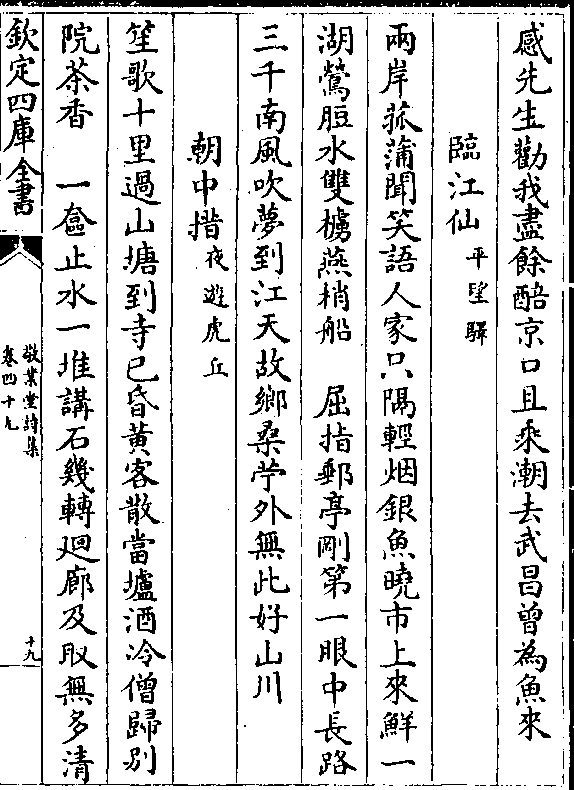 感先生勸我盡餘酷京口且乘潮去武昌曾為魚來
臨江仙平望驛
兩岸菰蒲聞笑語人家只隔輕烟銀魚曉市上來鮮一
湖鶯脰水雙櫓燕梢船　屈指郵亭剛第一眼中長路
三千南風吹夢到江天故鄉桑苧外無此好山川
朝中措夜遊虎丘
笙歌十里過山塘到寺已昏黄客散當壚酒冷僧歸别
院茶香　一奩止水一堆講石幾轉廻廊及取無多清
欽定四庫全書
敬業堂詩集
卷四十九
十九